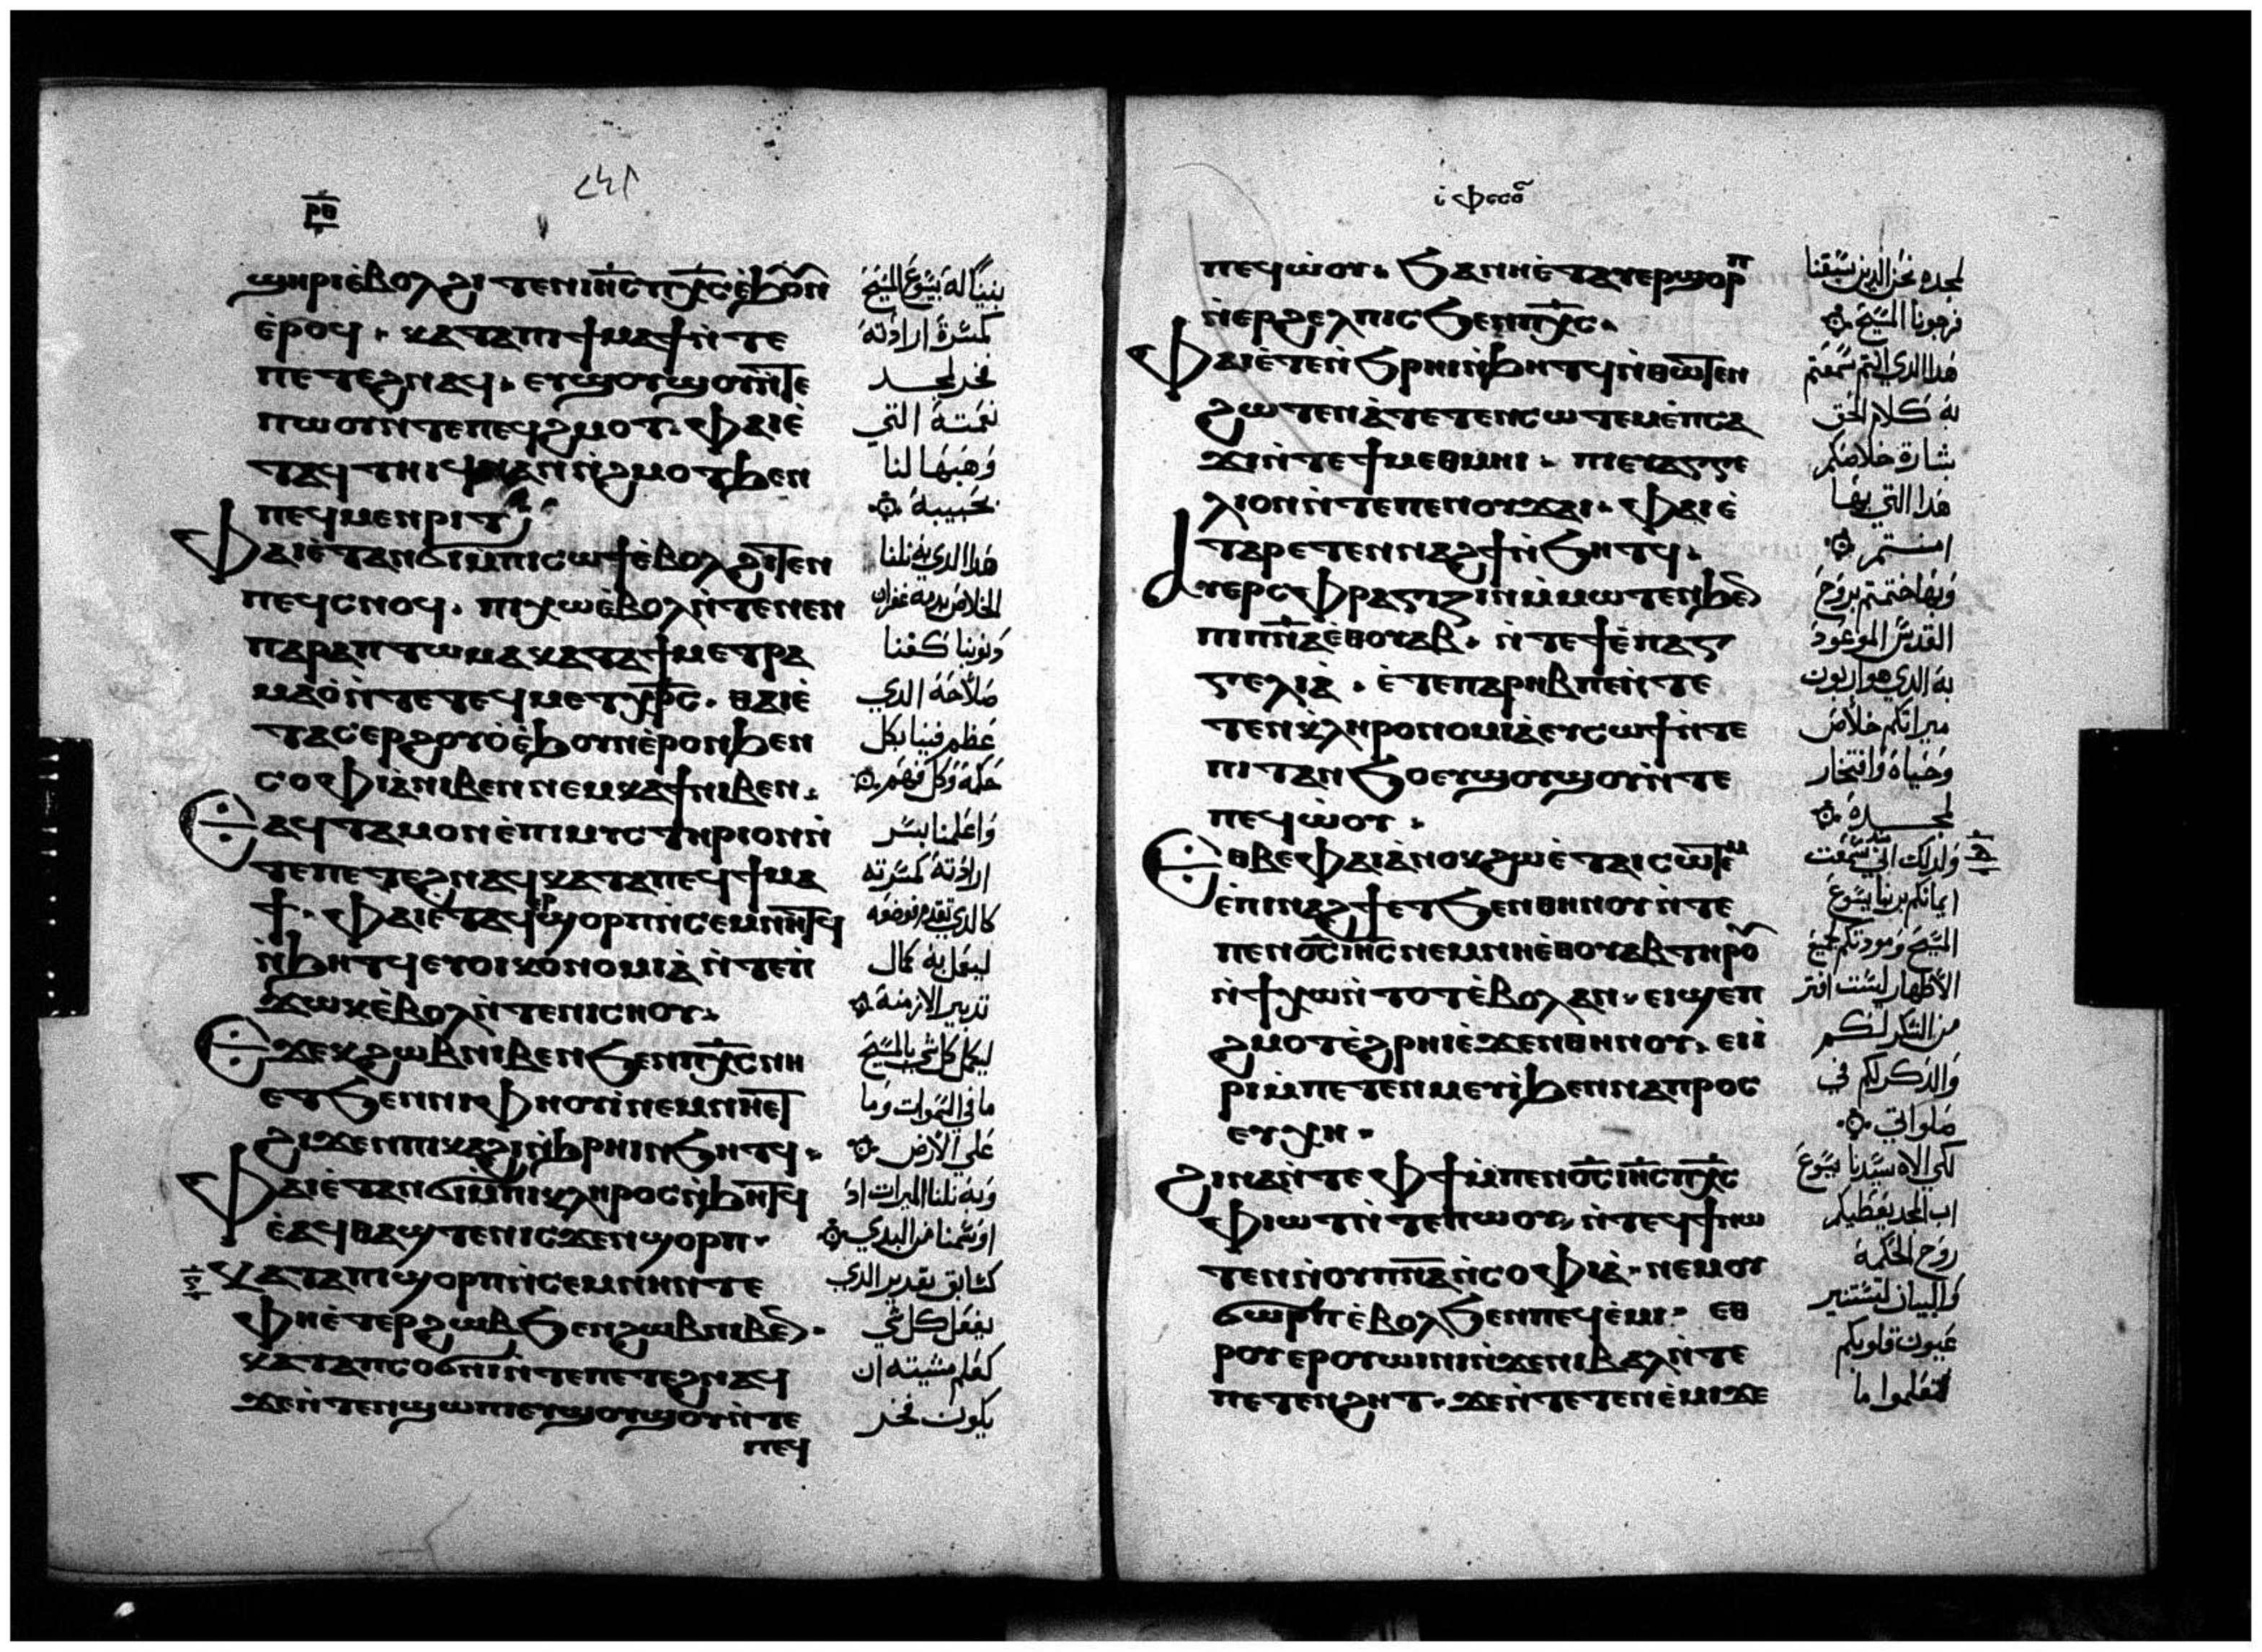 ⲣⲟ
ϣⲏⲣⲓⲉ̀ⲃⲟⲗϩⲓⲧⲉⲛⲓⲏ̅ⲥ̅ⲡⲭ̅ⲥ̅ⲉ̀ϧⲟⲩⲛ
ⲉ̀ⲣⲟϥ ⲕⲁⲧⲁⲡⲓϯⲙⲁϯⲛ̀ⲧⲉ
ⲡⲉⲧⲉϩⲛⲁϥ ⲉⲩϣⲟⲩϣⲟⲩⲛ̀ⲧⲉ
ⲡⲱⲟⲩⲛ̀ⲧⲉⲡⲉϥϩⲙⲟⲧ ⲫⲁⲓⲉ̀
ⲧⲁϥⲧⲏⲓϥⲛⲁⲛⲛ̀ϩⲙⲟⲧϧⲉⲛ
ⲡⲉϥⲙⲉⲛⲣⲓⲧ
ⲫⲁⲓⲉ̀ⲧⲁⲛϭⲓⲙ̀ⲡⲓⲥⲱϯⲉ̀ⲃⲟⲗϩⲓⲧⲉⲛ
ⲡⲉϥⲥⲛⲟϥ ⲡⲓⲭⲱⲉ̀ⲃⲟⲗⲛ̀ⲧⲉⲛⲉⲛ
ⲡⲁⲣⲁⲡⲧⲱⲙⲁⲕⲁⲧⲁϯⲙⲉⲧⲣⲁ
ⲙⲁⲟ̀ⲛ̀ⲧⲉⲧⲉϥⲙⲉⲧⲭ̅ⲣ̅ⲥ̅ ⲑⲁⲓⲉ̀
ⲧⲁⲥⲉⲣϩⲟⲩⲟ̀ⲉ̀ϧⲟⲩⲛⲉ̀ⲣⲟⲛϧⲉⲛ
ⲥⲟⲫⲓⲁ̀ⲛⲓⲃⲉⲛⲛⲉⲙⲕⲁϯⲛⲓⲃⲉⲛ
ⲉⲁϥⲧⲁⲙⲟⲛⲉ̀ⲡⲓⲙⲩⲥⲧⲏⲣⲓⲟⲛⲛ̀
ⲧⲉⲡⲉⲧⲉϩⲛⲁϥⲕⲁⲧⲁⲡⲉϥϯⲙⲁ
ϯ ⲫⲁⲓⲉ̀ⲧⲁϥⲣ̀ϣⲟⲣⲡⲛ̀ⲥⲉⲙⲛⲏⲧϥ
ⲛ̀ϧⲏⲧϥⲉⲩⲟⲓⲕⲟⲛⲟⲙⲓⲁ̀ⲛ̀ⲧⲉⲡ̀
ϫⲱⲕⲉ̀ⲃⲟⲗⲛ̀ⲧⲉⲛⲓⲥⲏⲟⲩ
ⲉϫⲉⲕϩⲱⲃⲛⲓⲃⲉⲛϧⲉⲛⲡⲭ̅ⲥ̅ⲛⲏ
ⲉⲧϧⲉⲛⲛⲓⲫⲏⲟⲩⲓ̀ⲛⲉⲙⲛⲏⲉⲧ
ϩⲓϫⲉⲛⲡⲓⲕⲁϩⲓⲛ̀ϧⲣⲏⲓⲛ̀ϧⲏⲧϥ
ⲫⲁⲓⲉ̀ⲧⲁⲛϭⲓⲙ̀ⲡⲓⲕⲗⲏⲣⲟⲥⲛ̀ϧⲏⲧϥ
ⲉ̀ⲁϥⲑⲁϣⲧⲉⲛⲓⲥϫⲉⲛϣⲟⲣⲡ
ⲕⲁⲧⲁⲡⲓϣⲟⲣⲡⲛ̀ⲥⲉⲙⲛⲏⲛ̀ⲧⲉ
ⲫⲏⲉ̀ⲧⲉⲣϩⲱⲃϧⲉⲛϩⲱⲃⲛⲓⲃⲉⲛ
ⲕⲁⲧⲁⲡⲥⲟϭⲛⲓⲛ̀ⲧⲉⲡⲉⲧⲉϩⲛⲁϥ
ϫⲉⲛ̀ⲧⲉⲛϣⲱⲡⲓⲉⲩϣⲟⲩϣⲟⲩⲛ̀ⲧⲉ
ⲡⲉϥ
بنينا له بيسوع المسيح
كمسرة ارادته
فخر لمجد
نعمته التي
وهبها لنا
بحبيبه
هذا الذي به نلنا
الخلاص بدمه غفران
ذنوبنا كغنا
صلاحه الذي
عظم فينا بكل
حكمة وكل فهم
واعلمنا بسر
ارادته كمسرته
كالذي تقدم فوضعه
ليعمل به كمال
تدبير الازمنة
ليكمل كل شي بالمسيح
ما في السموات وما
علي الارض
وبه نلنا الميرات اد
اوسمنا من البدي
كسابق تقدير الذي
يفعل كل شي
كعلم مشيته ان
يكون فخر
ⲓ ⲫⲉⲥⲟ
ⲡⲉϥⲱ̀ⲟⲩ ϧⲁⲛⲏⲉ̀ⲧⲁⲩⲉⲣϣⲟⲣⲡ
ⲛ̀ⲉⲣϩⲉⲗⲡⲓⲥϧⲉⲛⲡⲭ̅ⲥ̅
ⲫⲁⲓⲉ̀ⲧⲉⲛ̀ϧⲣⲏⲓⲛ̀ϧⲏⲧϥⲛ̀ⲑⲱⲧⲉⲛ
ϩⲱⲧⲉⲛⲁ̀ⲧⲉⲧⲉⲛⲥⲱⲧⲉⲙⲉ̀ⲡⲥⲁ
ϫⲓⲛ̀ⲧⲉϯⲙⲉⲑⲙⲏⲓ ⲡⲓⲉⲩⲁⲅⲅⲉ
ⲗⲓⲟⲛⲛ̀ⲧⲉⲡⲉⲛⲟⲩϫⲁⲓ ⲫⲁⲓⲉ̀
ⲧⲁⲣⲉⲧⲉⲛⲛⲁϩϯⲛ̀ϧⲏⲧϥ
ⲁⲩⲉⲣⲥⲫⲣⲁⲅⲓⲍⲓⲛⲙ̀ⲙⲱⲧⲉⲛϧⲉⲛ
ⲡⲓⲡ̅ⲛ̅ⲁ̅ⲉⲑⲟⲩⲁⲃ ⲛ̀ⲧⲉϯⲉ̀ⲡⲁⲅ
ⲅⲉⲗⲓⲁ̀ ⲉ̀ⲧⲉⲡⲁⲣⲏⲃⲡⲉⲛ̀ⲧⲉ
ⲧⲉⲛⲕ̀ⲗⲏⲣⲟⲛⲟⲙⲓⲁ̀ⲉⲩⲥⲱϯⲛ̀ⲧⲉ
ⲡⲓⲧⲁⲛϧⲟⲉⲩϣⲟⲩϣⲟⲩⲛ̀ⲧⲉ
ⲡⲉϥⲱ̀ⲟⲩ
ⲉⲑⲃⲉⲫⲁⲓⲁ̀ⲛⲟⲕϩⲱⲉ̀ⲧⲁⲓⲥⲱⲧⲉⲙ
ⲉ̀ⲡⲓⲛⲁϩϯⲉⲧϧⲉⲛⲑⲏⲛⲟⲩⲛ̀ⲧⲉ
ⲡⲉⲛⲟ̅ⲥ̅ⲓⲏ̅ⲥ̅ⲛⲉⲙⲛⲏⲉ̀ⲑⲟⲩⲁⲃⲧⲏⲣⲟⲩ
ⲛ̀ϯⲭⲱⲛ̀ⲧⲟⲧⲉ̀ⲃⲟⲗⲁⲛ ⲉⲓϣⲉⲡ
ϩⲙⲟⲧⲉ̀ϩⲣⲏⲓⲉ̀ϫⲉⲛⲑⲏⲛⲟⲩ ⲉⲓⲓ̀
ⲣⲓⲙ̀ⲡⲉⲧⲉⲛⲙⲉⲩⲓ̀ϧⲉⲛⲛⲁⲡⲣⲟⲥ
ⲉⲩⲭⲏ
ϩⲓⲛⲁⲛ̀ⲧⲉⲫϯⲙ̀ⲡⲉⲛⲟ̅ⲥ̅ⲓⲏ̅ⲥ̅ⲡⲭ̅ⲥ̅
ⲫⲓⲱⲧⲛ̀ⲧⲉⲡⲱⲟⲩ ⲛ̀ⲧⲉϥϯⲛⲱ
ⲧⲉⲛⲛ̀ⲟⲩⲡ̅ⲛ̅ⲁ̅ⲛ̀ⲥⲟⲫⲓⲁ̀ ⲛⲉⲙⲟⲩ
ϭⲱⲣⲡⲉ̀ⲃⲟⲗϧⲉⲛⲡⲉϥⲉ̀ⲙⲓ ⲉⲑ
ⲣⲟⲩⲉⲣⲟⲩⲱⲓⲛⲓⲛ̀ϫⲉⲛⲓⲃⲁⲗⲛ̀ⲧⲉ
ⲡⲉⲧⲉⲛϩⲏⲧ ϫⲉⲛ̀ⲧⲉⲧⲉⲛⲉ̀ⲙⲓϫⲉ
لمجده نحن الذين سبقنا
فرجونا المسيح
هذا الذي انتم سمعتم
به كلام الحق
بشارة خلاصكم
هذا التي بها
امنتم
وبها ختمتم بروح
القدس الموعود
به الذي هو اربون
ميراتكم خلاص
وحياة وافتخار
لمجده
ولذلك اني سمعت
ايمانكم بربنا يسوع
المسيح ومودتكم لجميع
الاطهار لست افتر
من الشكر لكم
والذكر لكم في
صلواتي
لكي الاه سيدنا يسوع
اب المجد يعطيكم
روح الحكمة
والبيان لتستنير
عيون قلوبكم
لتعلموا ما